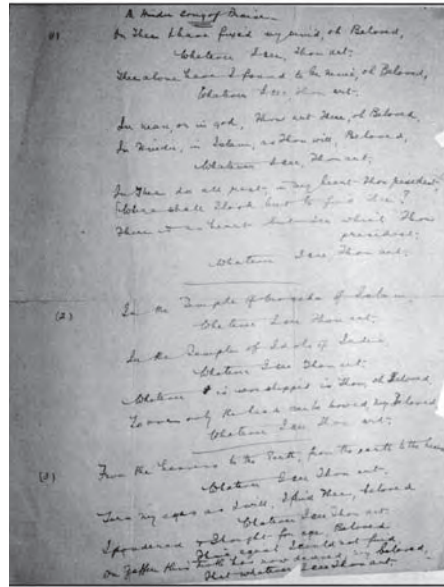 A Hindu Song of Praise
(1)
On Thee I have fixed my mind, oh Beloved,
Whatever I see, Thou art.
Thee alone have I found to be mine, oh Beloved,
Whatever I see Thou art.
In man, or in god, Thou art there, oh Beloved,
In Hindu, in Islam, as Thou will, Beloved,
Whatever I see, Thou art.
In Thee do all rest in my heart Thou presidest
Where shall I look but to find Thee?
There is a heart but in which Thou
presidest.
Whatever I see Thou art.
(2)
In the Temple of of Islam
Whatever I see Thou art.
In the Temples of Idols of India
Whatever I see Thou art.
Whatever is worshipped is Thou, oh Beloved,
To even only the head bowed, my Beloved
Whatever I see Thou art.
(3)
From the heavens to the Earth, from the earth to the heavens
Whatever I see Thou art.
Turn my eyes as I will, I find Thee, beloved
Whatever I see Thou art
I pondered & Thought for age, Beloved
Thine equal I could not find
On Zaffer this truth has my beloved,
That whatever I see Thou art.